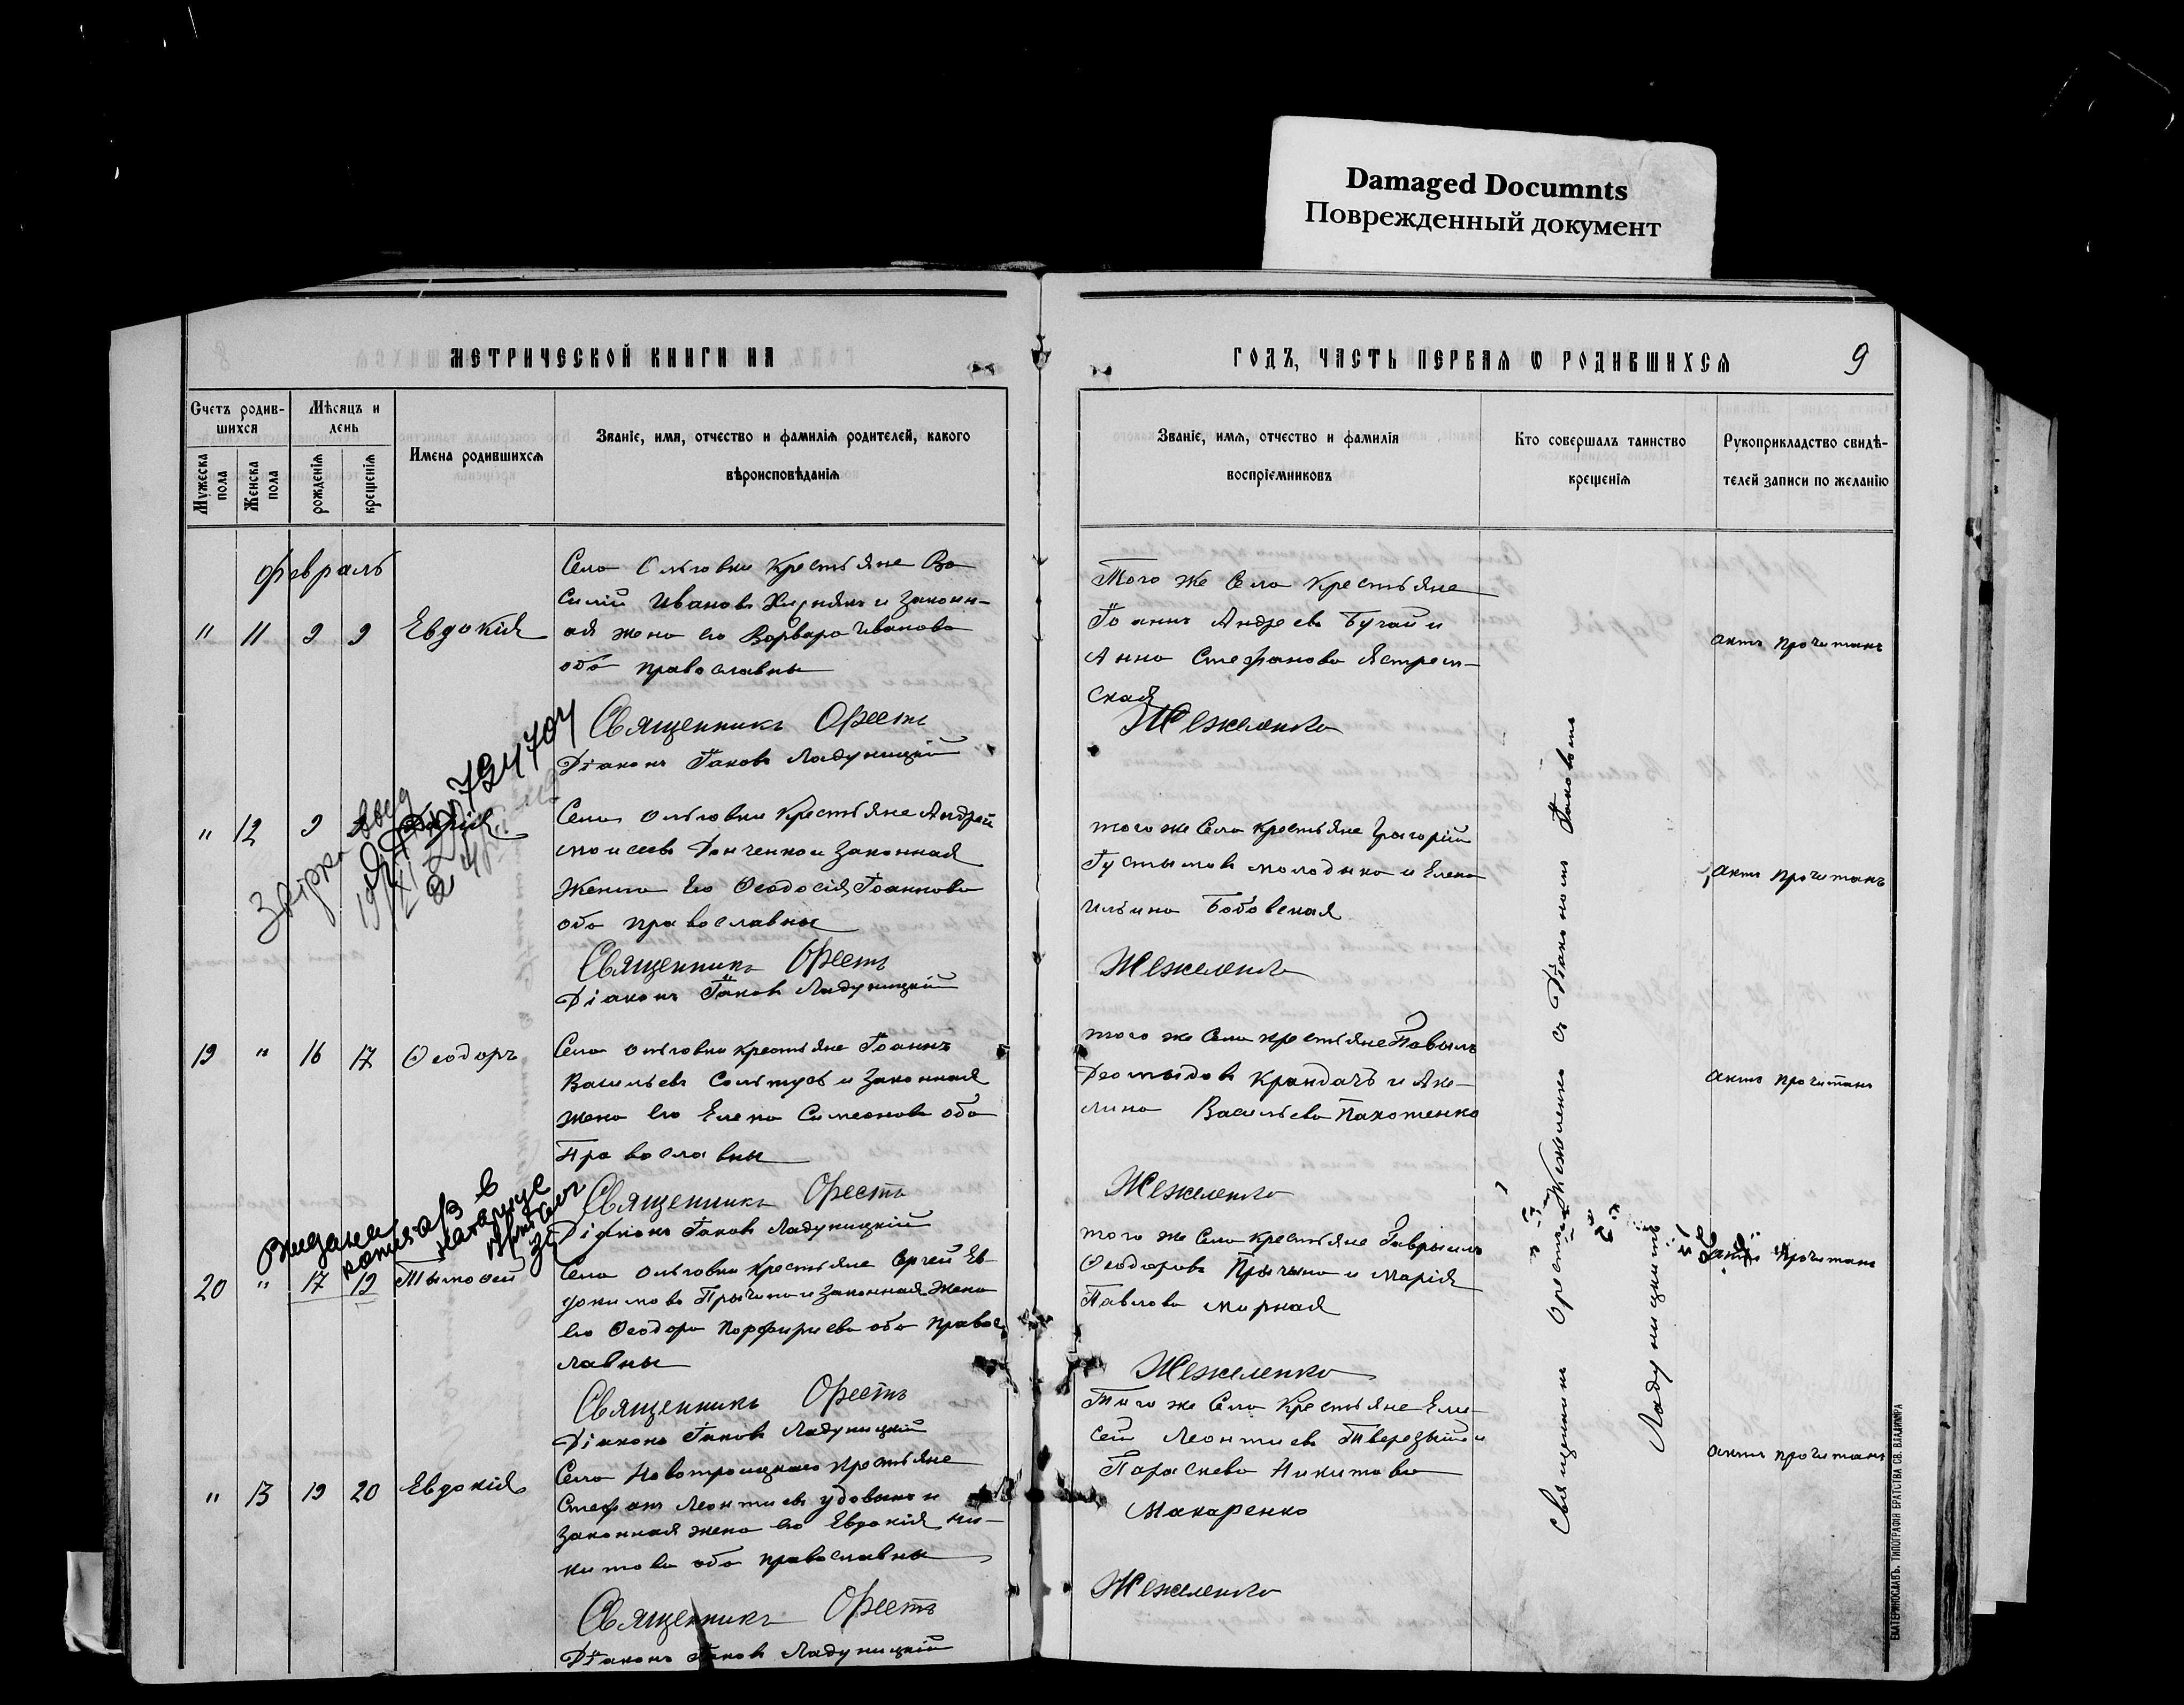 Damaged Documnts
Поврежденный документ
МЕТРИЧЕСКОЙ КНИГИ НА
ГОДЪ, ЧАСТЬ ПЕРВАЯ Ѡ РОДИВШИХСЯ
9
Счетъ родив-
шихся
Мужеска
пола
Женска
пола
Мѣсяцъ и
день
рожденія
крещенія
Имена родившихся
Званіе, имя, отчество и фамилія родителей, какого
вѣроисповѣданія
Званіе, имя, отчество и фамилія
воспріемниковъ
Кто совершалъ таинство
крещенія
Рукоприкладство свидѣ-
телей записи по желанію
Февраль
" 11 9 9 Евдокія
Села Ольговки Крестьяне Ва
силій Ивановъ и законн-
ая жена его Варвара Иванова
оба православны
Священникъ Орестъ
Діаконъ Іаковъ Ладуницкій
Того же Села Крестьяне
Іоаннъ Андреевъ Бугай и
Анна Стефанова Ястрем-
ская
Жежеленко
актъ прочитанъ
" 12 9
Села Ольговки Крестьяне Андрей
Моисеевъ Донченко и Законная
Жена Его Ѳеодосія Іоаннова
оба православны
Священникъ Орестъ
Діаконъ Іаковъ Ладуницкій
того же Села Крестьяне Григорій
молодыка и Елена
Ильина Бобовская
Жежеленко
актъ прочитанъ
19 " 16 17 Ѳеодоръ
Села Ольговки Крестьяне Іоаннъ
Васильевъ Солтусъ и Законная
жена его Елена Симеонова оба
Православны
Священникъ Орестъ
Діаконъ Іаковъ Ладуницкій
того же Села крестьяне Павылъ
Деомыдовъ Крандачъ и Аке-
лина Васильева Пахоменко
Жежеленко
актъ прочитанъ
Видана
20 " 17 19 Тымофей
Села Ольговки Крестьяне Сргей Ев-
докимовъ Прычина и Законная Жена
его Ѳеодора Порфириева оба правос
лавны
Священникъ Орестъ
Діаконъ Іаковъ Ладуницкій
того же Села крестьяне Гаврыилъ
Ѳеодоровъ Прычина и Марія
Павлова Мирная
Жежеленко
актъ Прочитанъ
" 13 19 20 Евдокія
Села Новотроицкаго Крестьяне
Стефанъ Леонтиевъ Удовыко и
законная жена его Евдокія Ни-
китова оба православны
Священникъ Орестъ
Діаконъ Іаковъ Ладуницкій
Того же Села Крестьяне Ели-
сей Леонтиевъ Тверезый и
Параскева Никитова
Макаренко
Жежеленко
актъ прочитанъ
Священникъ Орестъ Жежеленко съ Діакономъ Іаковомъ
Ладуницкимъ
ЕКАТЕРИНОСЛАВЪ. ТИПОГРАФІЯ БРАТСТВА СВ. ВЛАДИМІРА